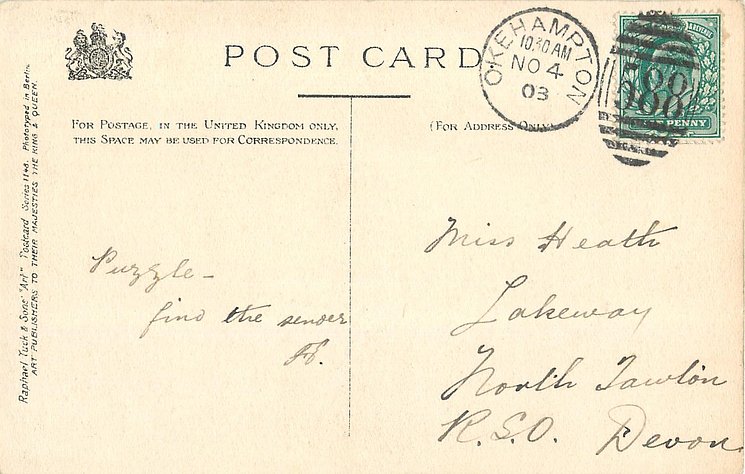 POST CARD
OKEHAMPTON
10.30 AM
NO 4
03
PENNY
FOR POSTAGE, IN THE UNITED KINGDOM ONLY,
THIS SPACE MAY BE USED FOR CORRESPONDENCE.
(FOR ADDRESS ONLY)
Raphael Tuck & Sons' "Art" Postcard Series 1148. Phototyped in Berlin.
ART PUBLISHERS TO THEIR MAJESTIES THE KING & QUEEN.
Puzzle –
find the sender
Miss Heath
Lakeway
North Tawton
R.S.O. Devon.